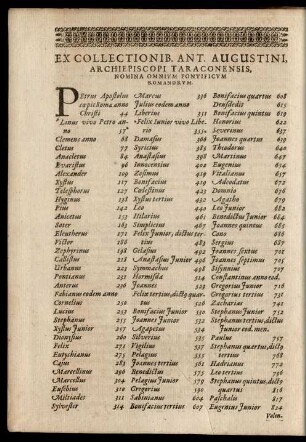 EX COLLECTIONIB. ANT. AUGUSTINI,
ARCHIEPISCOPI TARACONENSIS,
NOMINA OMNIUM PONTIFICUM
ROMANORUM.
PEtrus Apostolus
cœpit Roma anno
Christi 44
Linus vivo Petro an-
no 57
Clemens anno 68
Cletus 77
Anacletus 84
Evaristus 96
Alexander 109
Xystus 117
Telesphorus 127
Hyginus 138
Pius 142
Anicetus 153
Soter 162
Eleutherus 171
Victor 186
Zephyrinus 198
Callistus 218
Urbanus 222
Pontianus 231
Anterus 236
Fabianus eodem anno
Cornelius 250
Lucius 253
Stephanus 255
Xystus Junior 257
Dionysius 260
Felix 271
Eutychianus 275
Cajus 283
Marcellinus 296
Marcellus 304
Eusebius 309
Miltiades 311
Sylvester 314
Marcus 336
Julius eodem anno
Liberius 352
Felix Junior vivo Libe-
rio 355
Damasus 366
Syricius 385
Anastasius 398
Innocentius 402
Zosimus 417
Bonifacius 419
Cælestinus 423
Xystus tertius 432
Leo 440
Hilarius 461
Simplicius 467
Felix Junior, dictus ter-
tius 483
Gelasius 492
Anastasius Junior 496
Symmachus 498
Hormisda 514
Joannes 523
Felix tertius, dictus quar-
tus 526
Bonifacius Junior 530
Joannes Junior 532
Agapetus 535
Silverius 536
Vigilius 537
Pelagius 555
Joannes tertius 560
Benedictus 574
Pelagius Junior 579
Gregorius 590
Sabinianus 604
Bonifacius tertius 607
Bonifacius quartus 608
Deusdedit 615
Bonifacius quintus 619
Honorius 625
Severinus 639
Joannes quartus 639
Theodorus 641
Martinus 649
Eugenius 654
Vitalianus 657
Adeodatus 672
Domnus 676
Agatho 679
Leo Junior 682
Benedictus Junior 684
Joannes quintus 685
Cono 686
Sergius 687
Joannes sextus 701
Joannes septimus 705
Sisinnius 707
Constantinus anno eod.
Gregorius Junior 716
Gregorius tertius 731
Zacharias 741
Stephanus Junior 752
Stephanus tertius, dictus
Junior eod. men.
Paulus 757
Stephanus quartus, dictus
tertius 768
Hadrianus 772
Leo tertius 796
Stephanus quintus, dictus
quartus 816
Paschalis 817
Eugenius Junior 824
Valen-